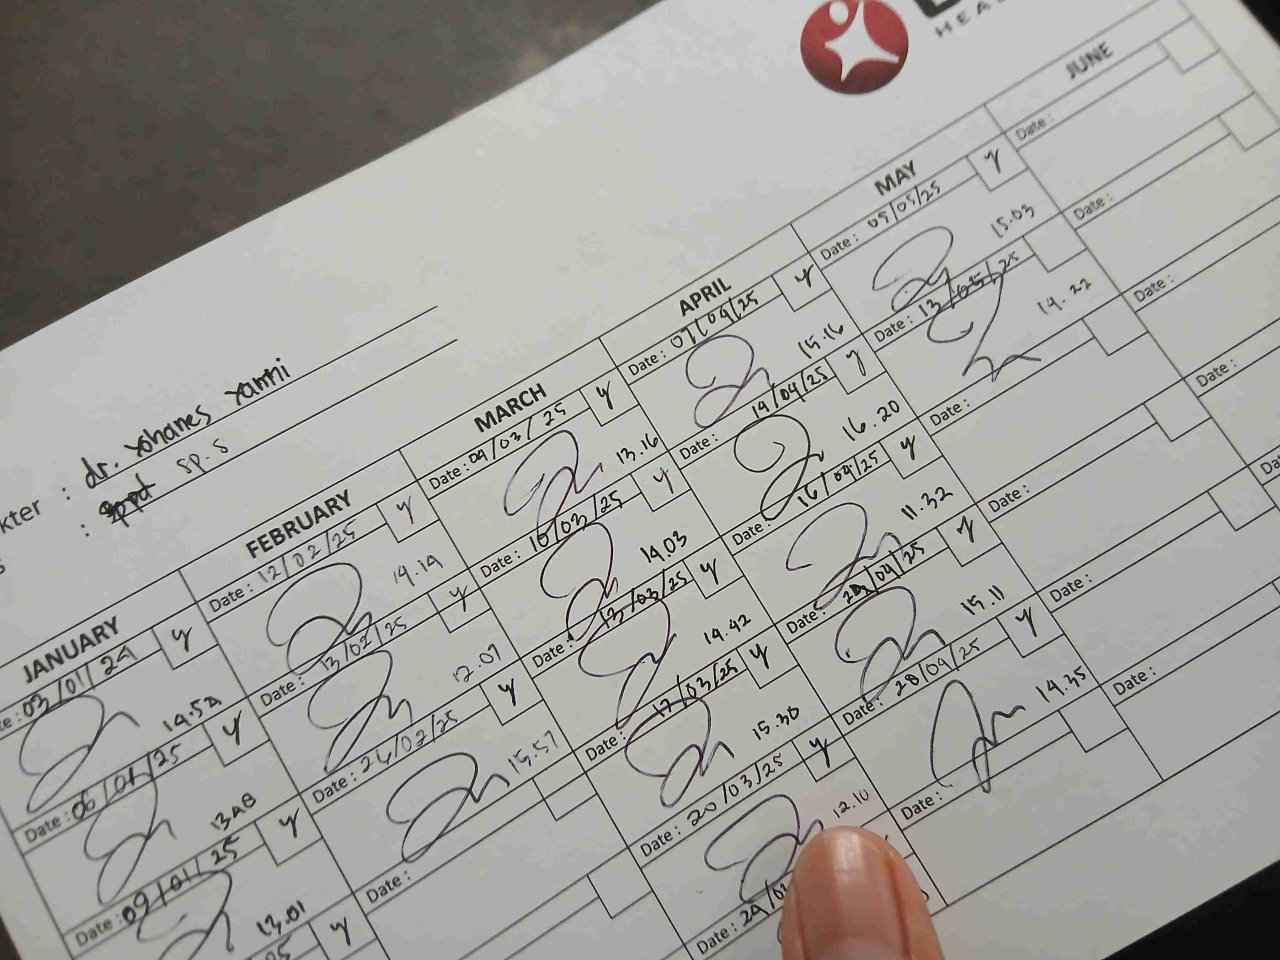 HEA
kter : dr. Yohanes Yanni
: Sp.S
JANUARY
03/01/24
14.52
Date: 06/01/25
Date: 09/01/25
13.01
FEBRUARY
Date: 12/02/25
14.19
Date: 13/02/25
12.07
Date: 26/02/25
15.57
Date:
MARCH
Date: 04/03/25
13.16
Date: 10/03/25
14.03
Date: 13/03/25
14.42
Date: 17/03/25
15.30
Date: 20/03/25
12.10
Date:
APRIL
Date: 07/04/25
15.16
Date: 14/04/25
16.20
Date: 16/04/25
11.32
Date:
15.11
Date: 28/04/25
14.35
Date:
MAY
Date: 05/05/25
15.03
Date: 13/05/25
14.22
Date:
Date:
Date:
Date:
JUNE
Date:
Date:
Date:
Date: